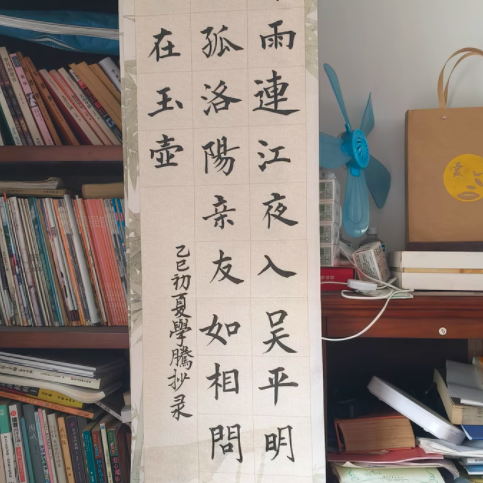 雨連江夜入吴平明
孤洛陽亲友如相問
在玉壺
乙巳初夏學騰抄录